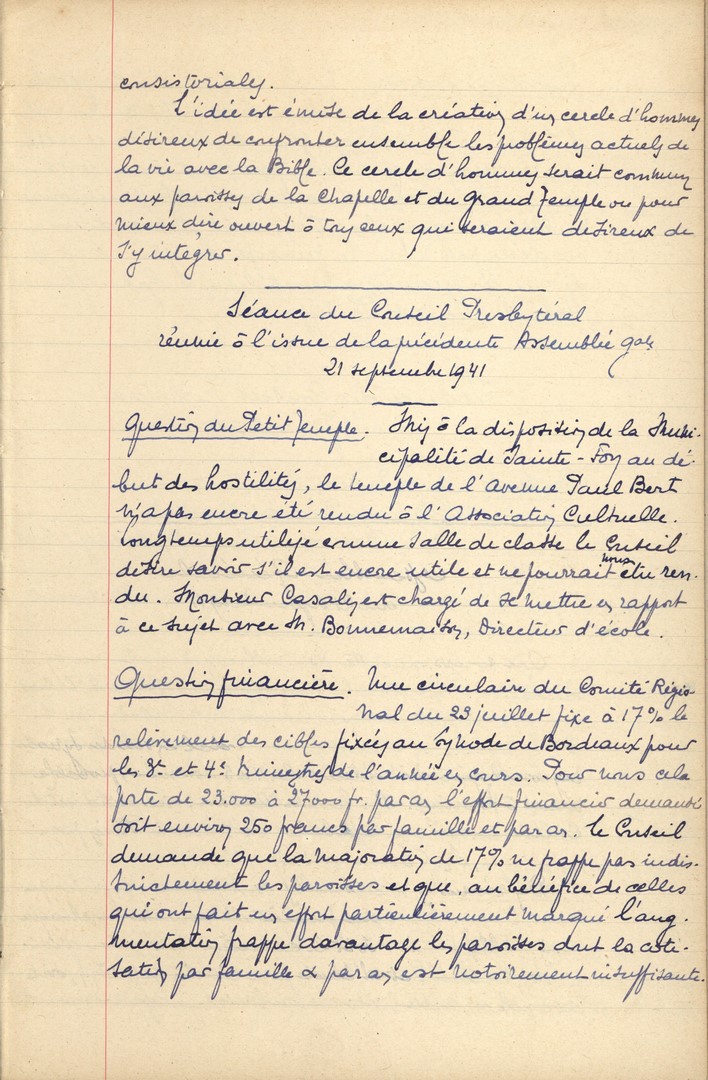 consistoriales.
L'idée est émise de la création d'un cercle d'hommes
désireux de confronter ensemble les problèmes actuels de
la vie avec la Bible. Ce cercle d'hommes serait commun
aux paroisses de la Chapelle et du Grand Temple ou pour
mieux dire ouvert à tous ceux qui seraient désireux de
s'y intégrer.
Séance du Conseil Presbytéral
réunie à l'issue de la précédente Assemblée gale
21 septembre 1941
Question du Petit Temple. Mis à la disposition de la Muni-
cipalité de Sainte-Foy au dé-
but des hostilités, le temple de l'Avenue Paul Bert
n'a pas encore été rendu à l'Association Cultuelle.
Longtemps utilisé comme salle de classe le Conseil
désire savoir s'il est encore utile et ne pourrait nous être ren-
du. Monsieur Casalis est chargé de se mettre en rapport
à ce sujet avec M. Bonnemaison, Directeur d'école.
Question financière. Une circulaire du Comité Régio-
nal du 23 juillet fixe à 17% le
relèvement des cibles fixées au Synode de Bordeaux pour
les 3e et 4e trimestres de l'année en cours. Pour nous cela
porte de 23.000 à 27000 fr. par an l'effort financier demandé
soit environ 250 francs par famille et par an. Le Conseil
demande que la majoration de 17% ne frappe pas indis-
tinctement les paroisses et que, au bénéfice de celles
qui ont fait un effort particulièrement marqué l'aug-
mentation frappe davantage les paroisses dont la coti-
sation par famille & par an est notoirement insuffisante.